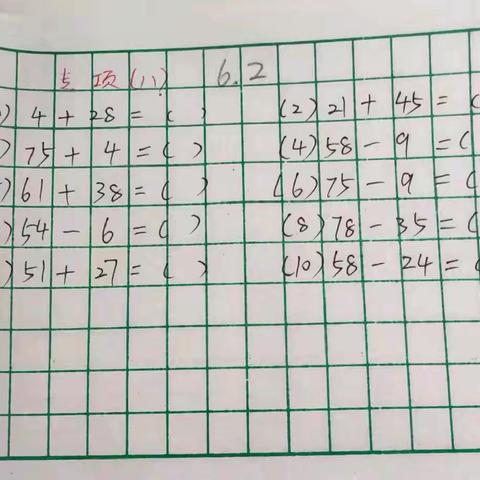 专项(八) 6.2
) 4 + 28 = ( ) (2) 21 + 45 = (
) 75 + 4 = ( ) (4) 58 - 9 = (
) 61 + 38 = ( ) (6) 75 - 9 = (
) 54 - 6 = ( ) (8) 78 - 35 = (
) 51 + 27 = ( ) (10) 58 - 24 = (